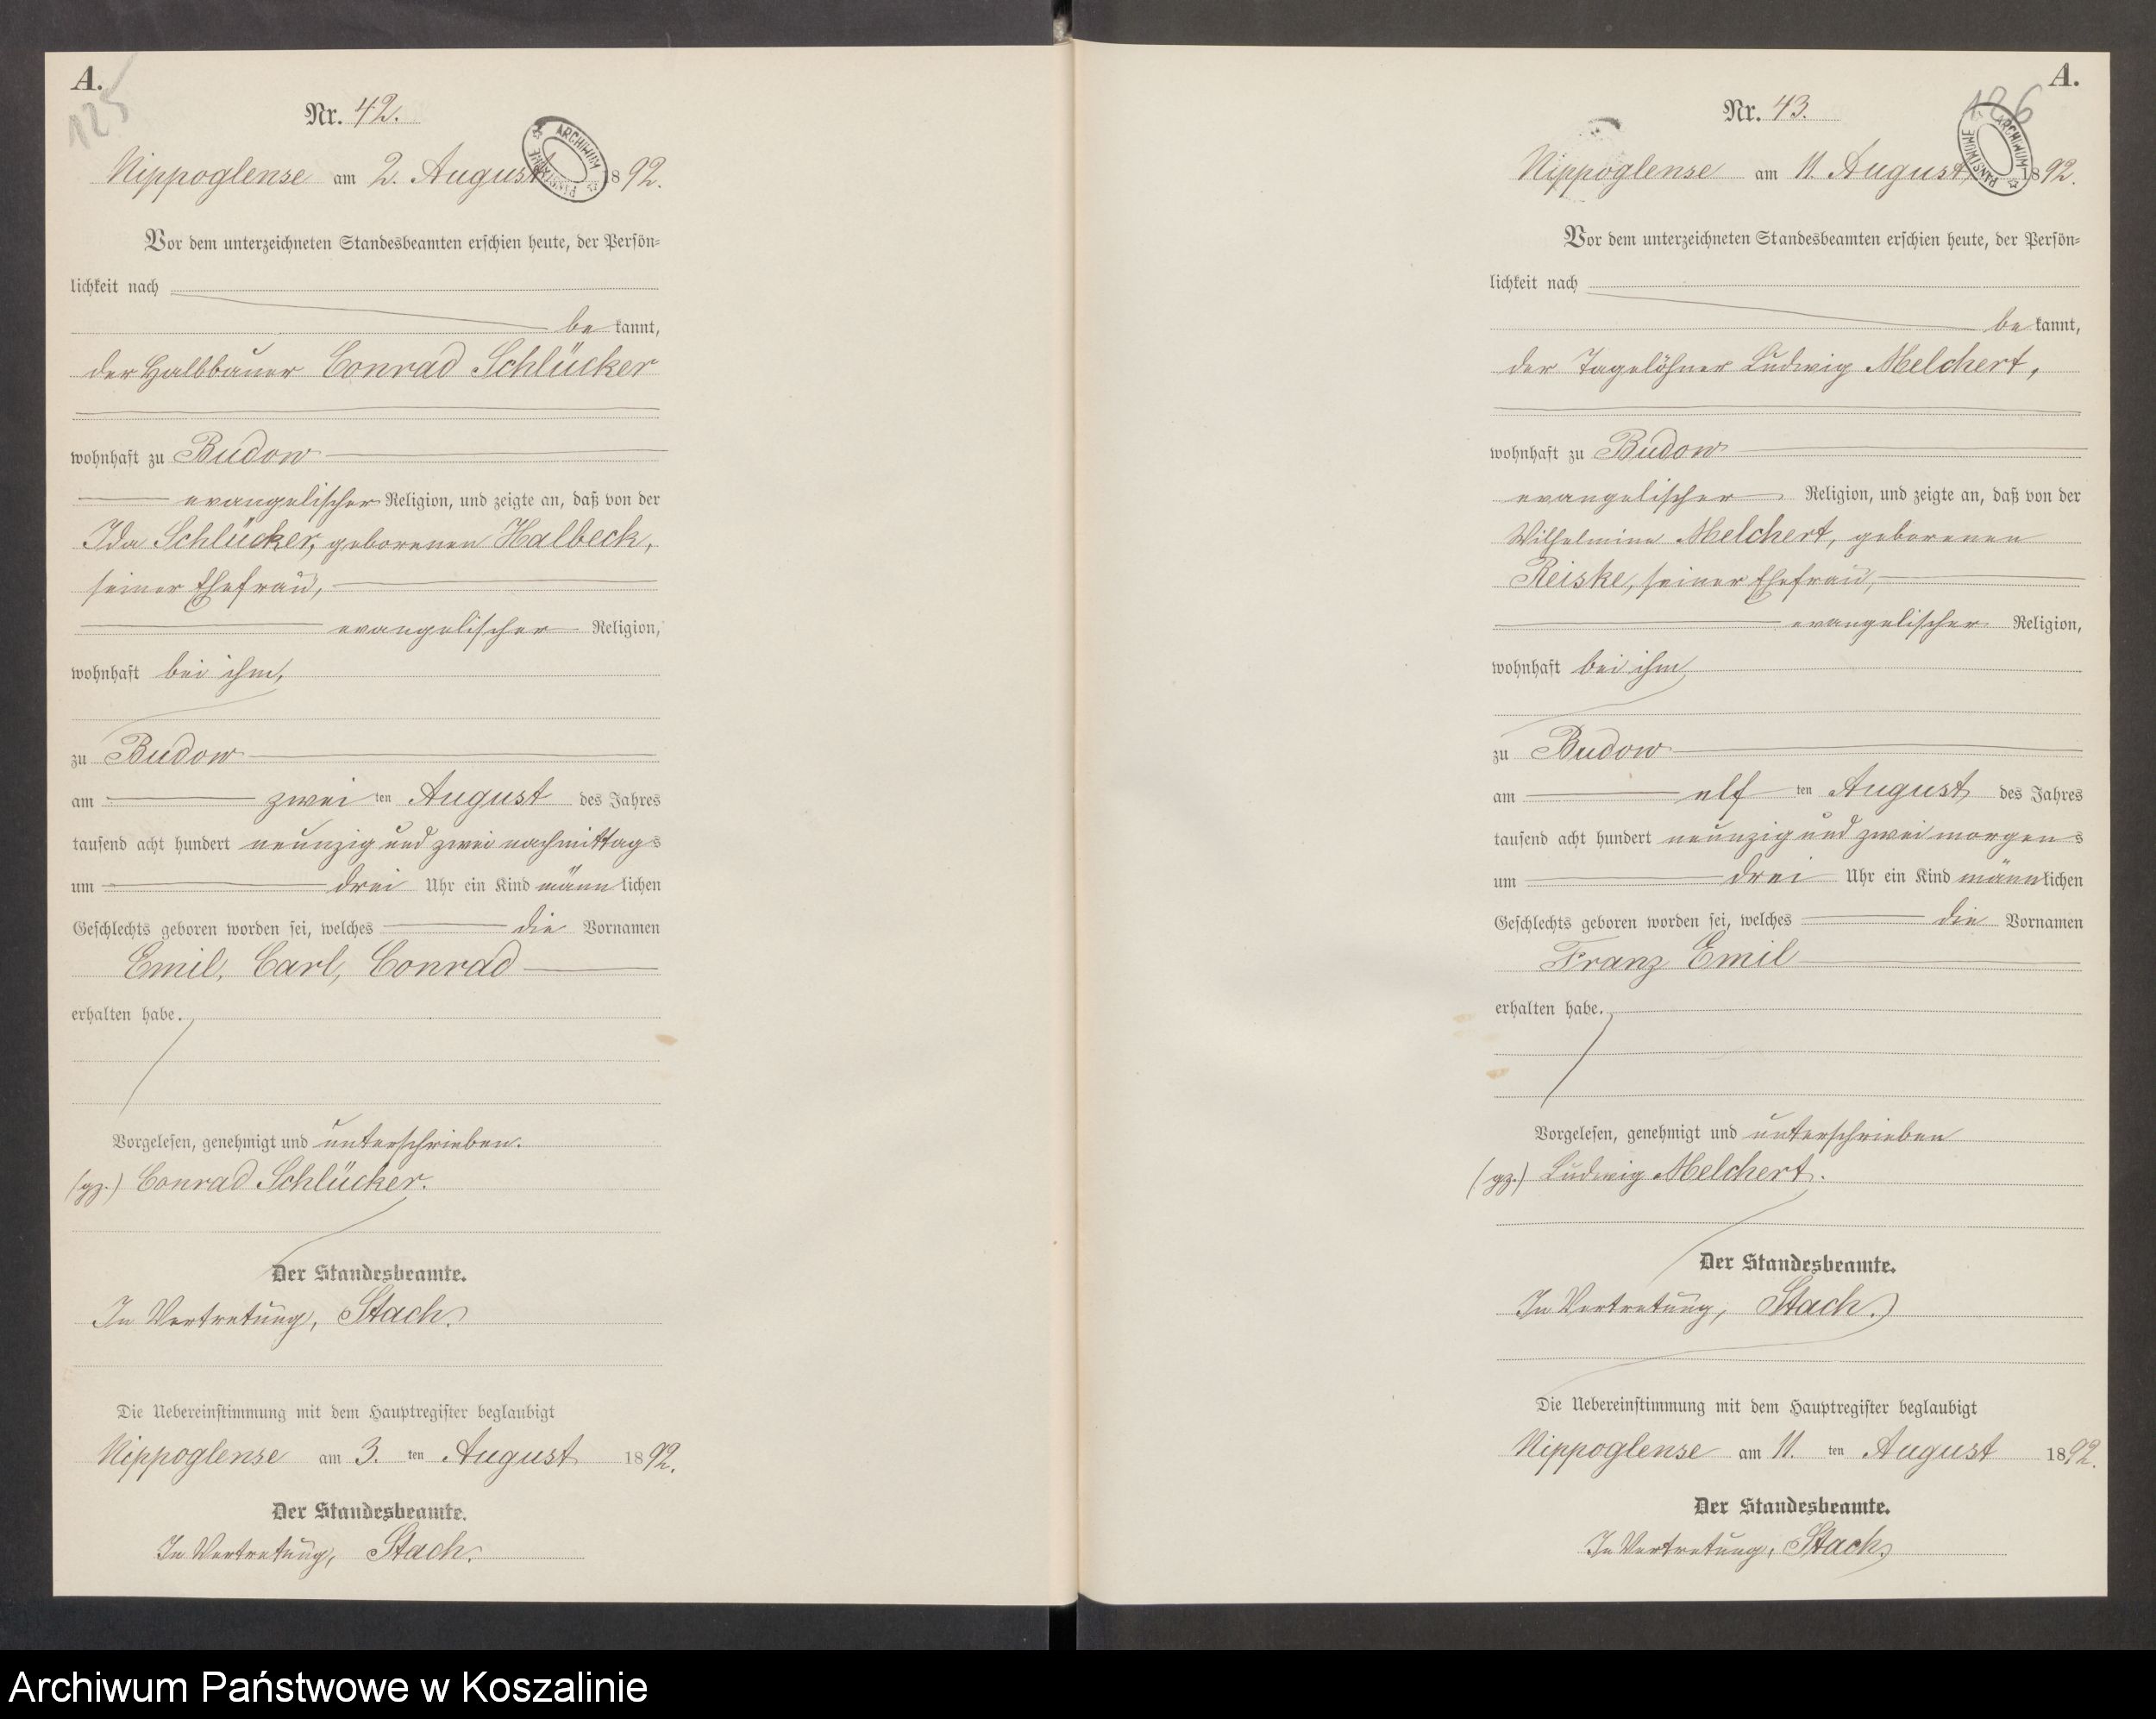 A.
125
Nr. 42.
Nippoglense am 2. August 1892.
ARCHIWUM PAŃSTWOWE
Vor dem unterzeichneten Standesbeamten erschien heute, der Persön-
lichkeit nach
be kannt,
der Halbbauer Conrad Schlücker
wohnhaft zu Budow
evangelischer Religion, und zeigte an, daß von der
Ida Schlücker, geborenen Halbeck,
seiner Ehefrau,
evangelischer Religion,
wohnhaft bei ihm,
zu Budow
am zwei ten August des Jahres
tausend acht hundert neunzig und zwei nachmittags
um drei Uhr ein Kind männlichen
Geschlechts geboren worden sei, welches die Vornamen
Emil, Carl, Conrad
erhalten habe.
Vorgelesen, genehmigt und unterschrieben.
(gz.) Conrad Schlücker.
Der Standesbeamte.
In Vertretung, Stach.
Die Uebereinstimmung mit dem Hauptregister beglaubigt
Nippoglense am 3. ten August 1892.
Der Standesbeamte.
In Vertretung, Stach.
A.
126
Nr. 43.
Nippoglense am 11. August 1892.
ARCHIWUM PAŃSTWOWE
Vor dem unterzeichneten Standesbeamten erschien heute, der Persön-
lichkeit nach
be kannt,
der Tagelöhner Ludwig Melchert,
wohnhaft zu Budow
evangelischer Religion, und zeigte an, daß von der
Wilhelmine Melchert, geborenen
Reiske, seiner Ehefrau,
evangelischer Religion,
wohnhaft bei ihm
zu Budow
am elf ten August des Jahres
tausend acht hundert neunzig und zwei morgens
um drei Uhr ein Kind männlichen
Geschlechts geboren worden sei, welches die Vornamen
Franz Emil
erhalten habe.
Vorgelesen, genehmigt und unterschrieben
(gz.) Ludwig Melchert.
Der Standesbeamte.
In Vertretung, Stach.
Die Uebereinstimmung mit dem Hauptregister beglaubigt
Nippoglense am 11. ten August 1892.
Der Standesbeamte.
In Vertretung, Stach.
Archiwum Państwowe w Koszalinie